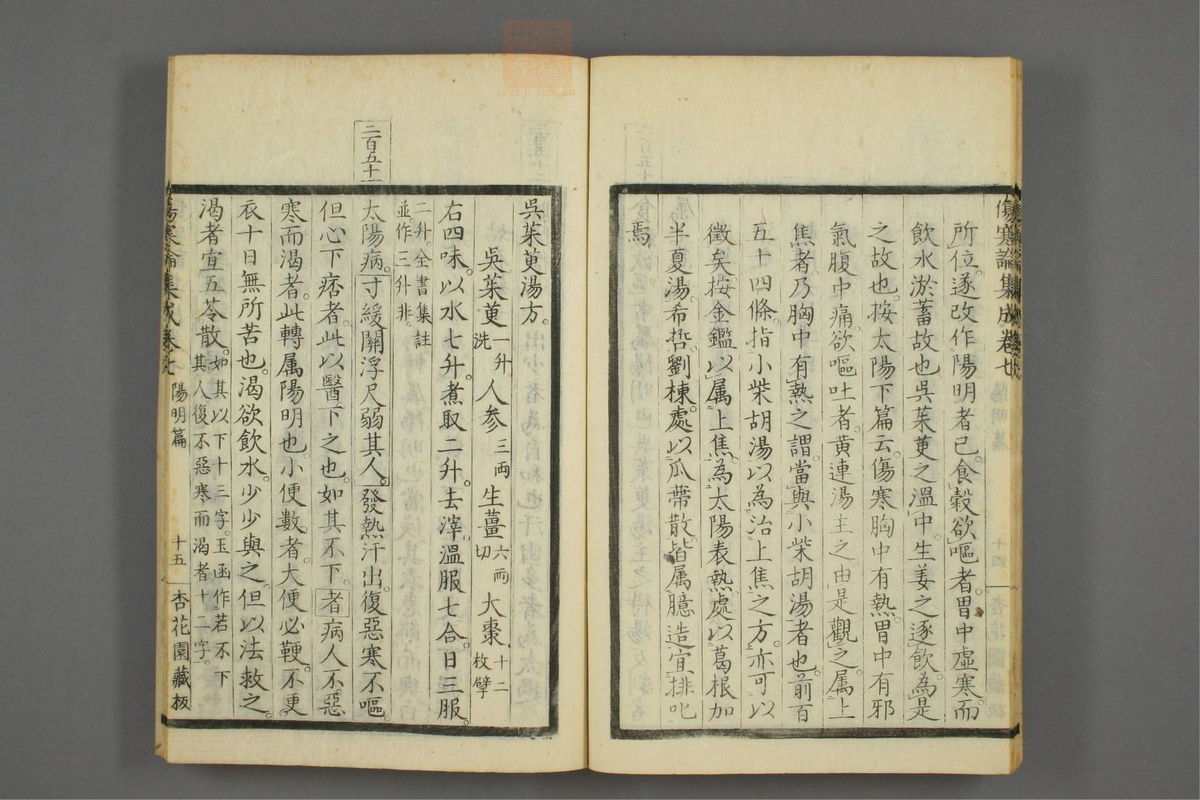 傷寒論集成卷七
所位。遂改作陽明者已。食穀欲嘔者。胃中虛寒。而
飲水淤蓄故也。吳茱萸之溫中。生姜之逐飲。為是
之故也。按太陽下篇云。傷寒胸中有熱。胃中有邪
氣。腹中痛。欲嘔吐者。黃連湯主之。由是觀之。属上
焦者。乃胸中有熱之謂。當與小柴胡湯者也。前百
五十四條。指小柴胡湯以為治上焦之方。亦可以
徵矣。按金鑑以属上焦。為太陽表熱。處以葛根加
半夏湯。希哲劉棟。處以瓜蔕散。皆属臆造。宜排叱
焉。
吳茱萸湯方。
吳茱萸一升洗 人參三両 生薑六両切 大棗十二枚擘
右四味。以水七升。煮取二升。去滓。溫服七合。日三服。
二升。全書集註
並作三升非。
二百五十一
太陽病。寸緩關浮尺弱。其人。發熱汗出。復惡寒不嘔。
但心下痞者。此以醫下之也。如其不下。者病人不惡
寒而渴者。此轉属陽明也。小便數者。大便必鞕。不更
衣十日。無所苦也。渴欲飲水。少少與之。但以法救之。
渴者宜五苓散。如其以下十三字。玉函作若不下
其人復不惡寒而渴者十二字。
傷寒論集成卷七 陽明篇 十五 杏花園藏板